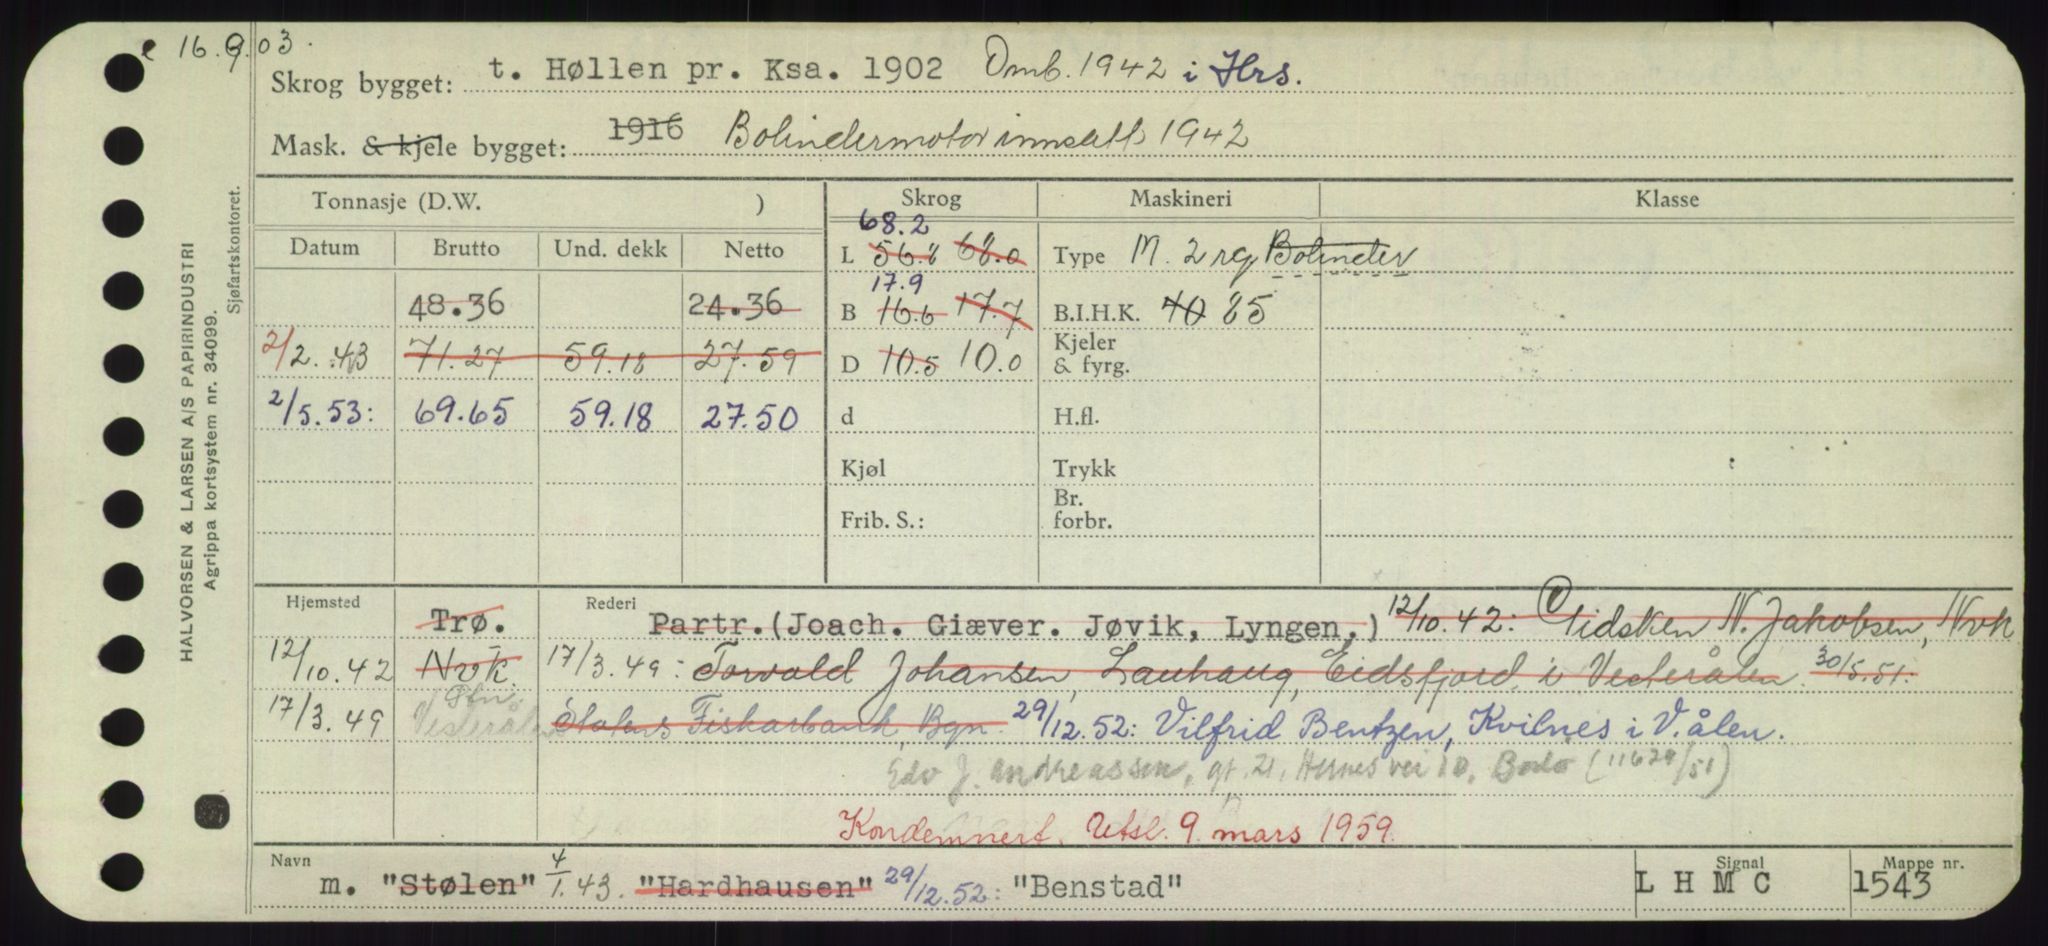 16.9.03.
Skrog bygget: t. Høllen pr. Ksa. 1902 Omb. 1942 i Hrs.
Mask. & kjele bygget: 1916 Bolindermotor innsatt 1942
Tonnasje (D.W. ) Skrog Maskineri Klasse
Datum Brutto Und. dekk Netto
68.2
L 56.8 68.0 Type M. 2 rg Bolinder
17.9
48.36 24.36 B 16.6 17.7 B.I.H.K. 40 85
2/2.43 71.27 59.18 27.59 D 10.5 10.0 Kjeler & fyrg.
2/5.53: 69.65 59.18 27.50 d H.fl.
Kjøl Trykk
Frib. S.: Br. forbr.
Hjemsted Trø. Rederi Partr.(Joach. Giæver. Jøvik, Lyngen,) 12/10.42: Didsken N. Jakobsen, Nvk
12/10.42 Nvk. 17/3.49: Torvald Johansen, Lauhaug, Eidsfjord i Vesterålen. 30/5.51.
17/3.49 Vesterålen Statens Fiskarbank, Bgn. 29/12.52: Vilfrid Bentzen, Kvilnes i V.ålen.
Edv J. Andreassen, gt. 21, Hernes vei 10, Bodø (11629/51)
Kondemnert. Utsl. 9. mars 1959.
Navn m. "Stølen" 4/1.43. "Hardhausen" 29/12.52: "Benstad" Signal L H M C Mappe nr. 1543
HALVORSEN & LARSEN A/S PAPIRINDUSTRI
Agrippa kortsystem nr. 34099.
Sjøfartskontoret.